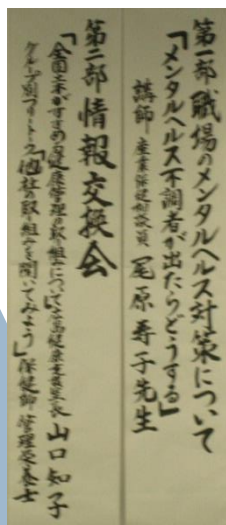 第一部 職場のメンタルヘルス対策について
「メンタルヘルス不調者が出たらどうする」
講師 産業保健相談員 尾原寿子先生
第二部 情報交換会
「全国土木がすすめる健康管理の取組みについて」土木健康支援室長 山口知子
グループ別フリートーク「他社の取り組みを聞いてみよう」保健師 管理栄養士